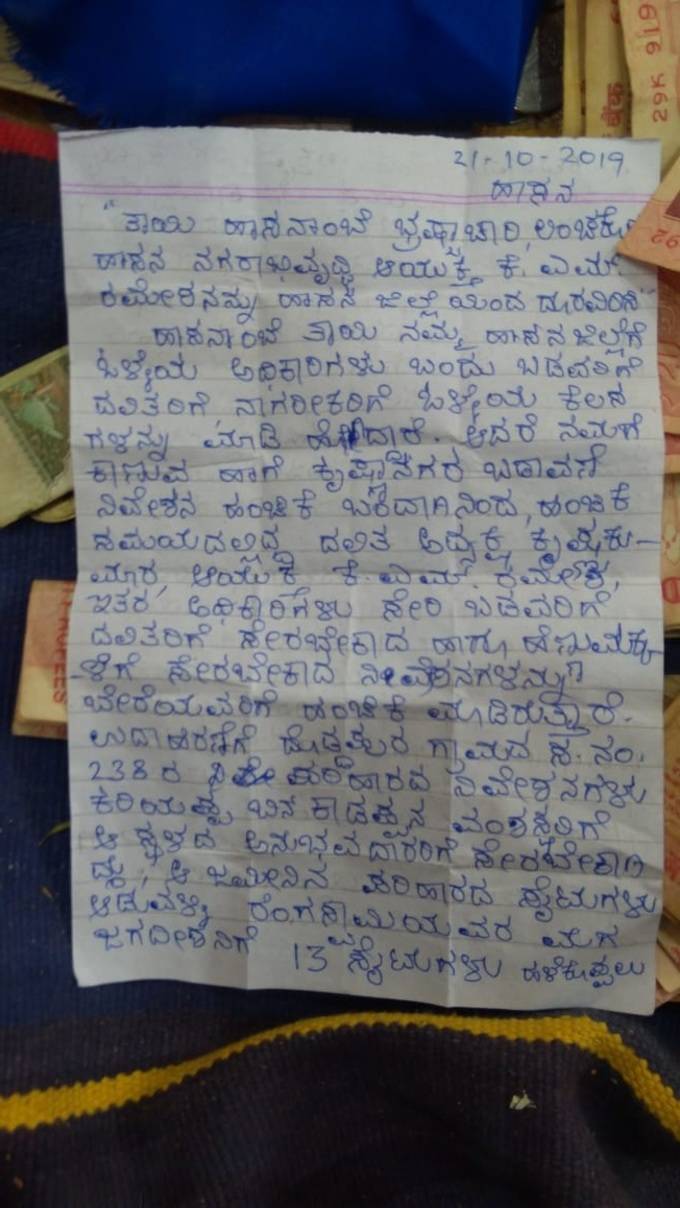 21-10-2019
ಹಾಸನ
"ತಾಯಿ ಹಾಸನಾಂಬೆ ಭ್ರಷ್ಟಾಚಾರಿ, ಲಂಚಕೋರ
ಹಾಸನ ನಗರಾಭಿವೃದ್ಧಿ ಆಯುಕ್ತ ಕೆ. ಎಮ್.
ರಮೇಶನನ್ನು ಹಾಸನ ಜಿಲ್ಲೆಯಿಂದ ದೂರವಿರಿಸಿ"
ಹಾಸನಾಂಬೆ ತಾಯಿ ನಮ್ಮ ಹಾಸನ ಜಿಲ್ಲೆಗೆ
ಒಳ್ಳೆಯ ಅಧಿಕಾರಿಗಳು ಬಂದು ಬಡವರಿಗೆ
ದಲಿತರಿಗೆ ನಾಗರೀಕರಿಗೆ ಒಳ್ಳೆಯ ಕೆಲಸ
ಗಳನ್ನು ಮಾಡಿ ಹೋದಾರೆ. ಆದರೆ ನಮಗೆ
ಕಾಣುವ ಹಾಗೆ ಕೃಷ್ಣಾನಗರ ಬಡಾವಣೆ
ನಿವೇಶನ ಹಂಚಿಕೆ ಬರೆದಾಗಿನಿಂದ, ಹಂಚಿಕೆ
ಸಮಯದಲ್ಲಿದ್ದ ದಲಿತ ಅಧ್ಯಕ್ಷ ಕೃಷ್ಣಕು-
ಮಾರ, ಆಯುಕ್ತ ಕೆ. ಎಮ್. ರಮೇಶ,
ಇತರ ಅಧಿಕಾರಿಗಳು ಸೇರಿ ಬಡವರಿಗೆ
ದಲಿತರಿಗೆ ಸೇರಬೇಕಾದ ಹಾಗೂ ಹೆಣ್ಣುಮಕ್ಕ-
-ಳಿಗೆ ಸೇರಬೇಕಾದ ನಿವೇಶನಗಳನ್ನು
ಬೇರೆಯವರಿಗೆ ಹಂಚಿಕೆ ಮಾಡಿರುತ್ತಾರೆ.
ಉದಾಹರಣೆಗೆ ಗ್ರಾಮದ ಸ. ನಂ.
238 ರ ಪರಿಹಾರದ ನಿವೇಶನಗಳು
ಕರಿಯಪ್ಪ ಬಿನ ಕಾಡಪ್ಪನ ವಂಶಸ್ಥರಿಗೆ
ಆ ಸ್ಥಳದ ಅನುಭವದಾರರಿಗೆ ಸೇರಬೇಕಾಗಿ
ದ್ದು, ಆ ಜಮೀನಿನ ಪರಿಹಾರದ ಸೈಟುಗಳು
ಆಡುವಳ್ಳಿ ರಂಗಸ್ವಾಮಿಯವರ ಮಗ
ಜಗದೀಶನಿಗೆ 13 ಸೈಟುಗಳು ಹಳೆಕೊಪ್ಪಲು
29K 919